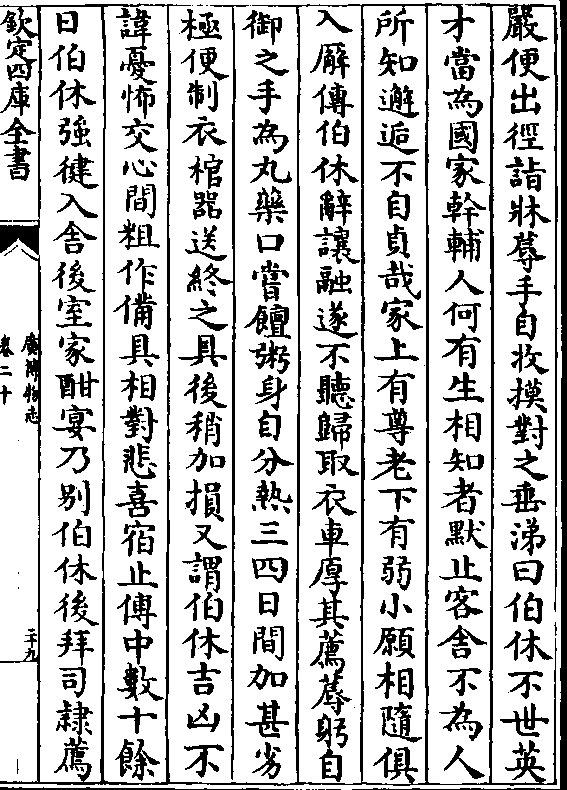 嚴便出徑詣牀蓐手自收摸對之垂涕曰伯休不世英
才當為國家幹輔人何有生相知者默止客舍不為人
所知邂逅不自貞哉家上有尊老下有弱小願相隨俱
入廨傳伯休辭讓融遂不聽歸取衣車厚其薦蓐躬自
御之手為丸藥口嘗饘粥身自分熱三四日間加甚劣
極便制衣棺器送終之具後稍加損又謂伯休吉凶不
諱憂怖交心間粗作備具相對悲喜宿止傳中數十餘
日伯休強健入舍後室家酣宴乃別伯休後拜司隸薦
欽定四庫全書
廣博物志
卷二十
二十九